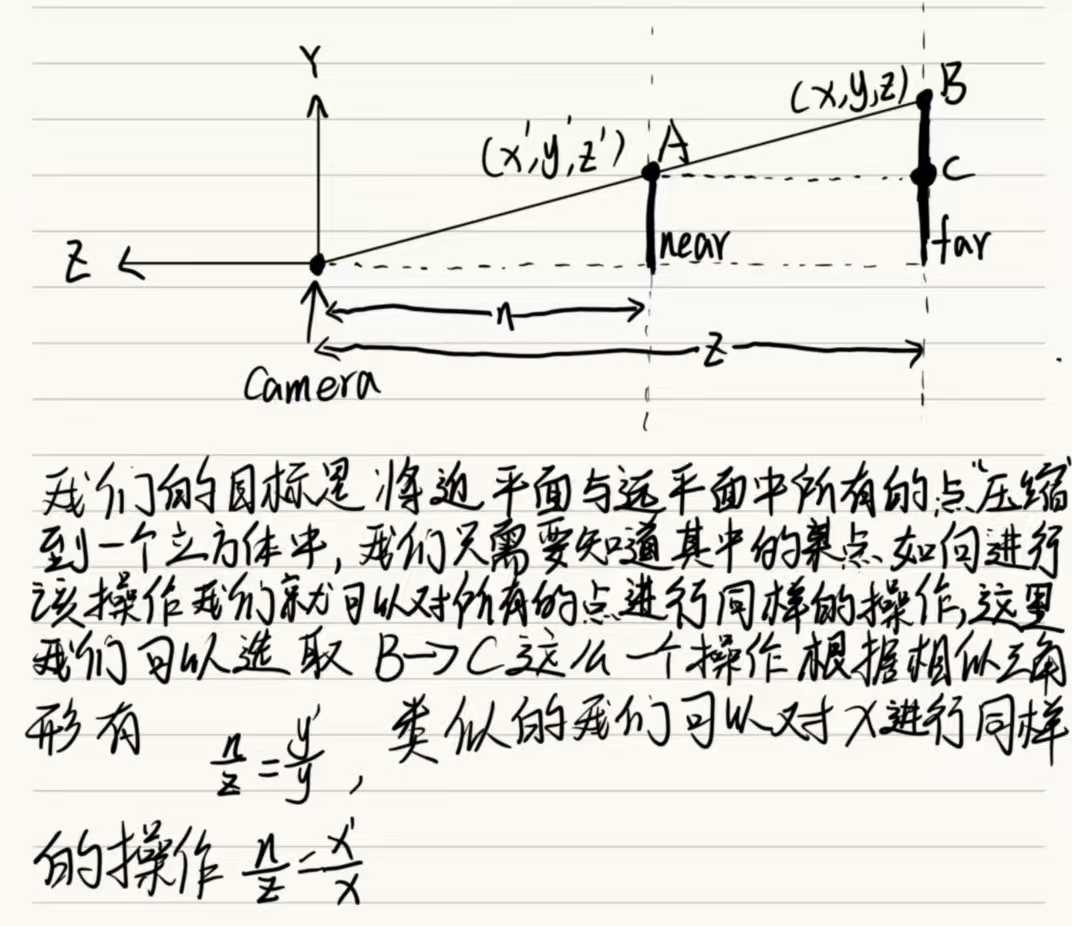 Y
(x,y,z) B
(x',y',z') A
C
Z
near
far
n
z
Camera
我们的目标是将近平面与远平面中所有的点"压缩"
到一个立方体中,我们只需要知道其中的某点如何进行
该操作我们就可以对所有的点进行同样的操作,这里
我们可以选取 B→C 这么一个操作根据相似三角
形有 n/z = y'/y , 类似的我们可以对 x 进行同样
的操作 n/z = x'/x